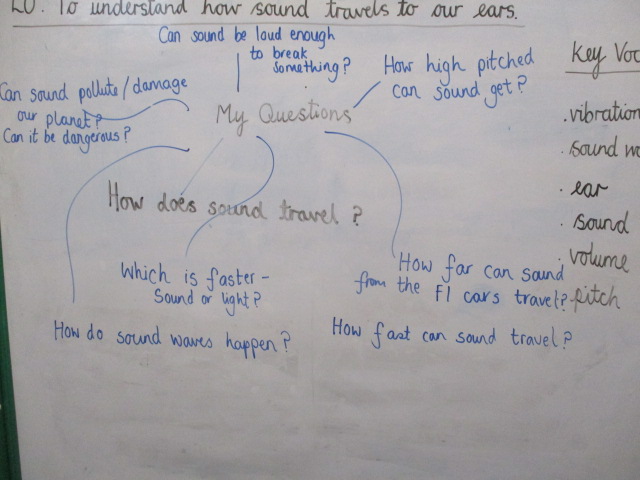 LO. To understand how sound travels to our ears.
Can sound be loud enough
to break
something?
How high pitched
can sound get?
Can sound pollute/damage
our planet?
Can it be dangerous?
My Questions
How does sound travel?
Which is faster -
Sound or light?
How far can sound
from the F1 cars travel?
How do sound waves happen?
How fast can sound travel?
Key Voc
. vibration
. sound wa
. ear
. sound
. volume
. pitch